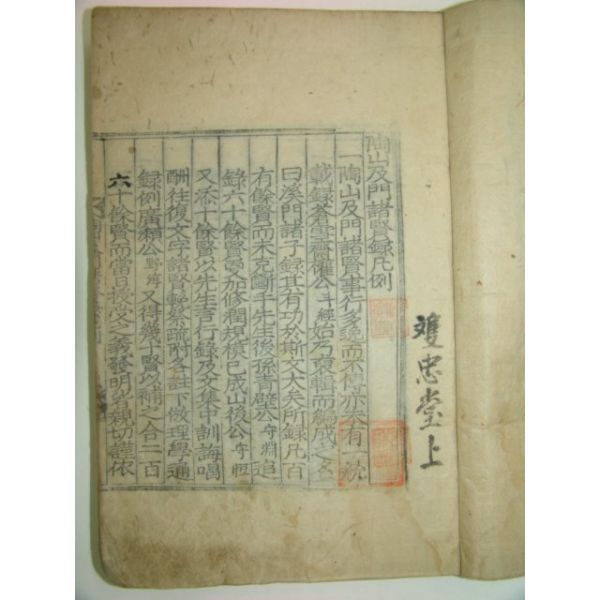 雙忠堂上
陶山及門諸賢錄凡例
一陶山及門諸賢事行多逸而不傳亦未有一統
載錄蒼雪齋權公斗經始乃裒輯而編成之名
曰溪門諸子錄其有功於斯文大矣所錄凡百
有餘賢而未克斷手先生後孫靑壁公守淵追
錄六十餘賢更加修潤規模已成山後公守恒
又添十餘賢以先生言行錄及文集中訓誨唱
酬往復文字諸賢輒繁疏附各註下倣理學通
錄例廣瀬公野淳又得幾十賢以補之合二百
六十餘賢而當日授受之義發明皆親切謹依